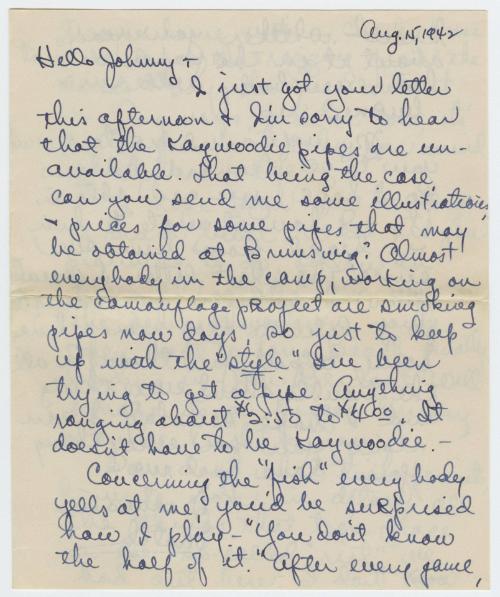 Aug. 15, 1942
Hello Johnny -
I just got your letter
this afternoon & I'm sorry to hear
that the Kaywoodie pipes are un-
available. That being the case,
can you send me some illustrations
& prices for some pipes that may
be obtained at Brunswig? Almost
everybody in the camp, working on
the camouflage project are smoking
pipes now days, so just to keep
up with the "style" I've been
trying to get a pipe. Anything
ranging about $2.50 to $4.00. It
doesn't have to be Kaywoodie. -
Concerning the "fish" every body
yells at me, you'd be surprised
how I play - "You don't know
the half of it." After every game,